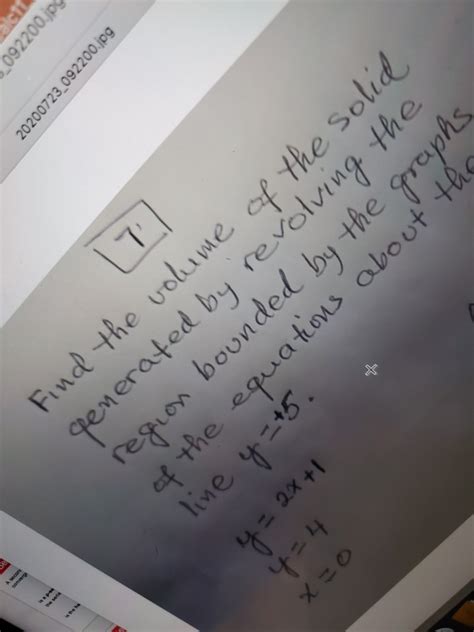 092200.jpg
20200723_092200.jpg
7.
Find the volume of the solid
generated by revolving the
region bounded by the graphs
of the equations about the
line y=+5.
y=2x+1
y=4
x=0